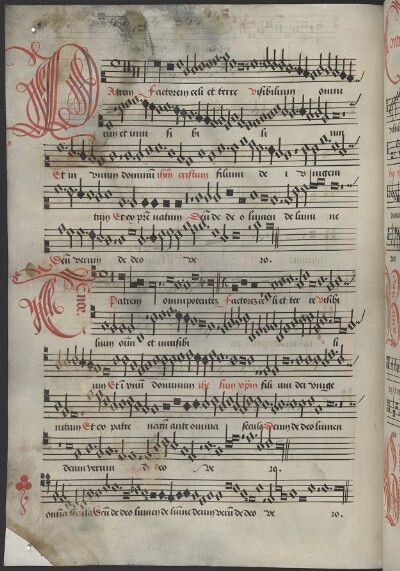 Patrem Factorem celi et terre visibilium omni
um et invi si bi li um
Et in unum dominum ihm cristum filium de i unigeni
tum Et ex pre natum Deu de de o lumen de lumi ne
Deu verum de deo ve ro.
Tenor
Patrem omnipotentem Factorem celi et terre visibi
lium oim et invisibi li
um Et i unu dominum ihm xpm fili um dei unige
nitum Et ex patre natu ante omnia secula Deum de deo lumen
deum verum de deo ve ro.
omia secula Deu de deo lumen de lumine deum veru de deo ve ro.